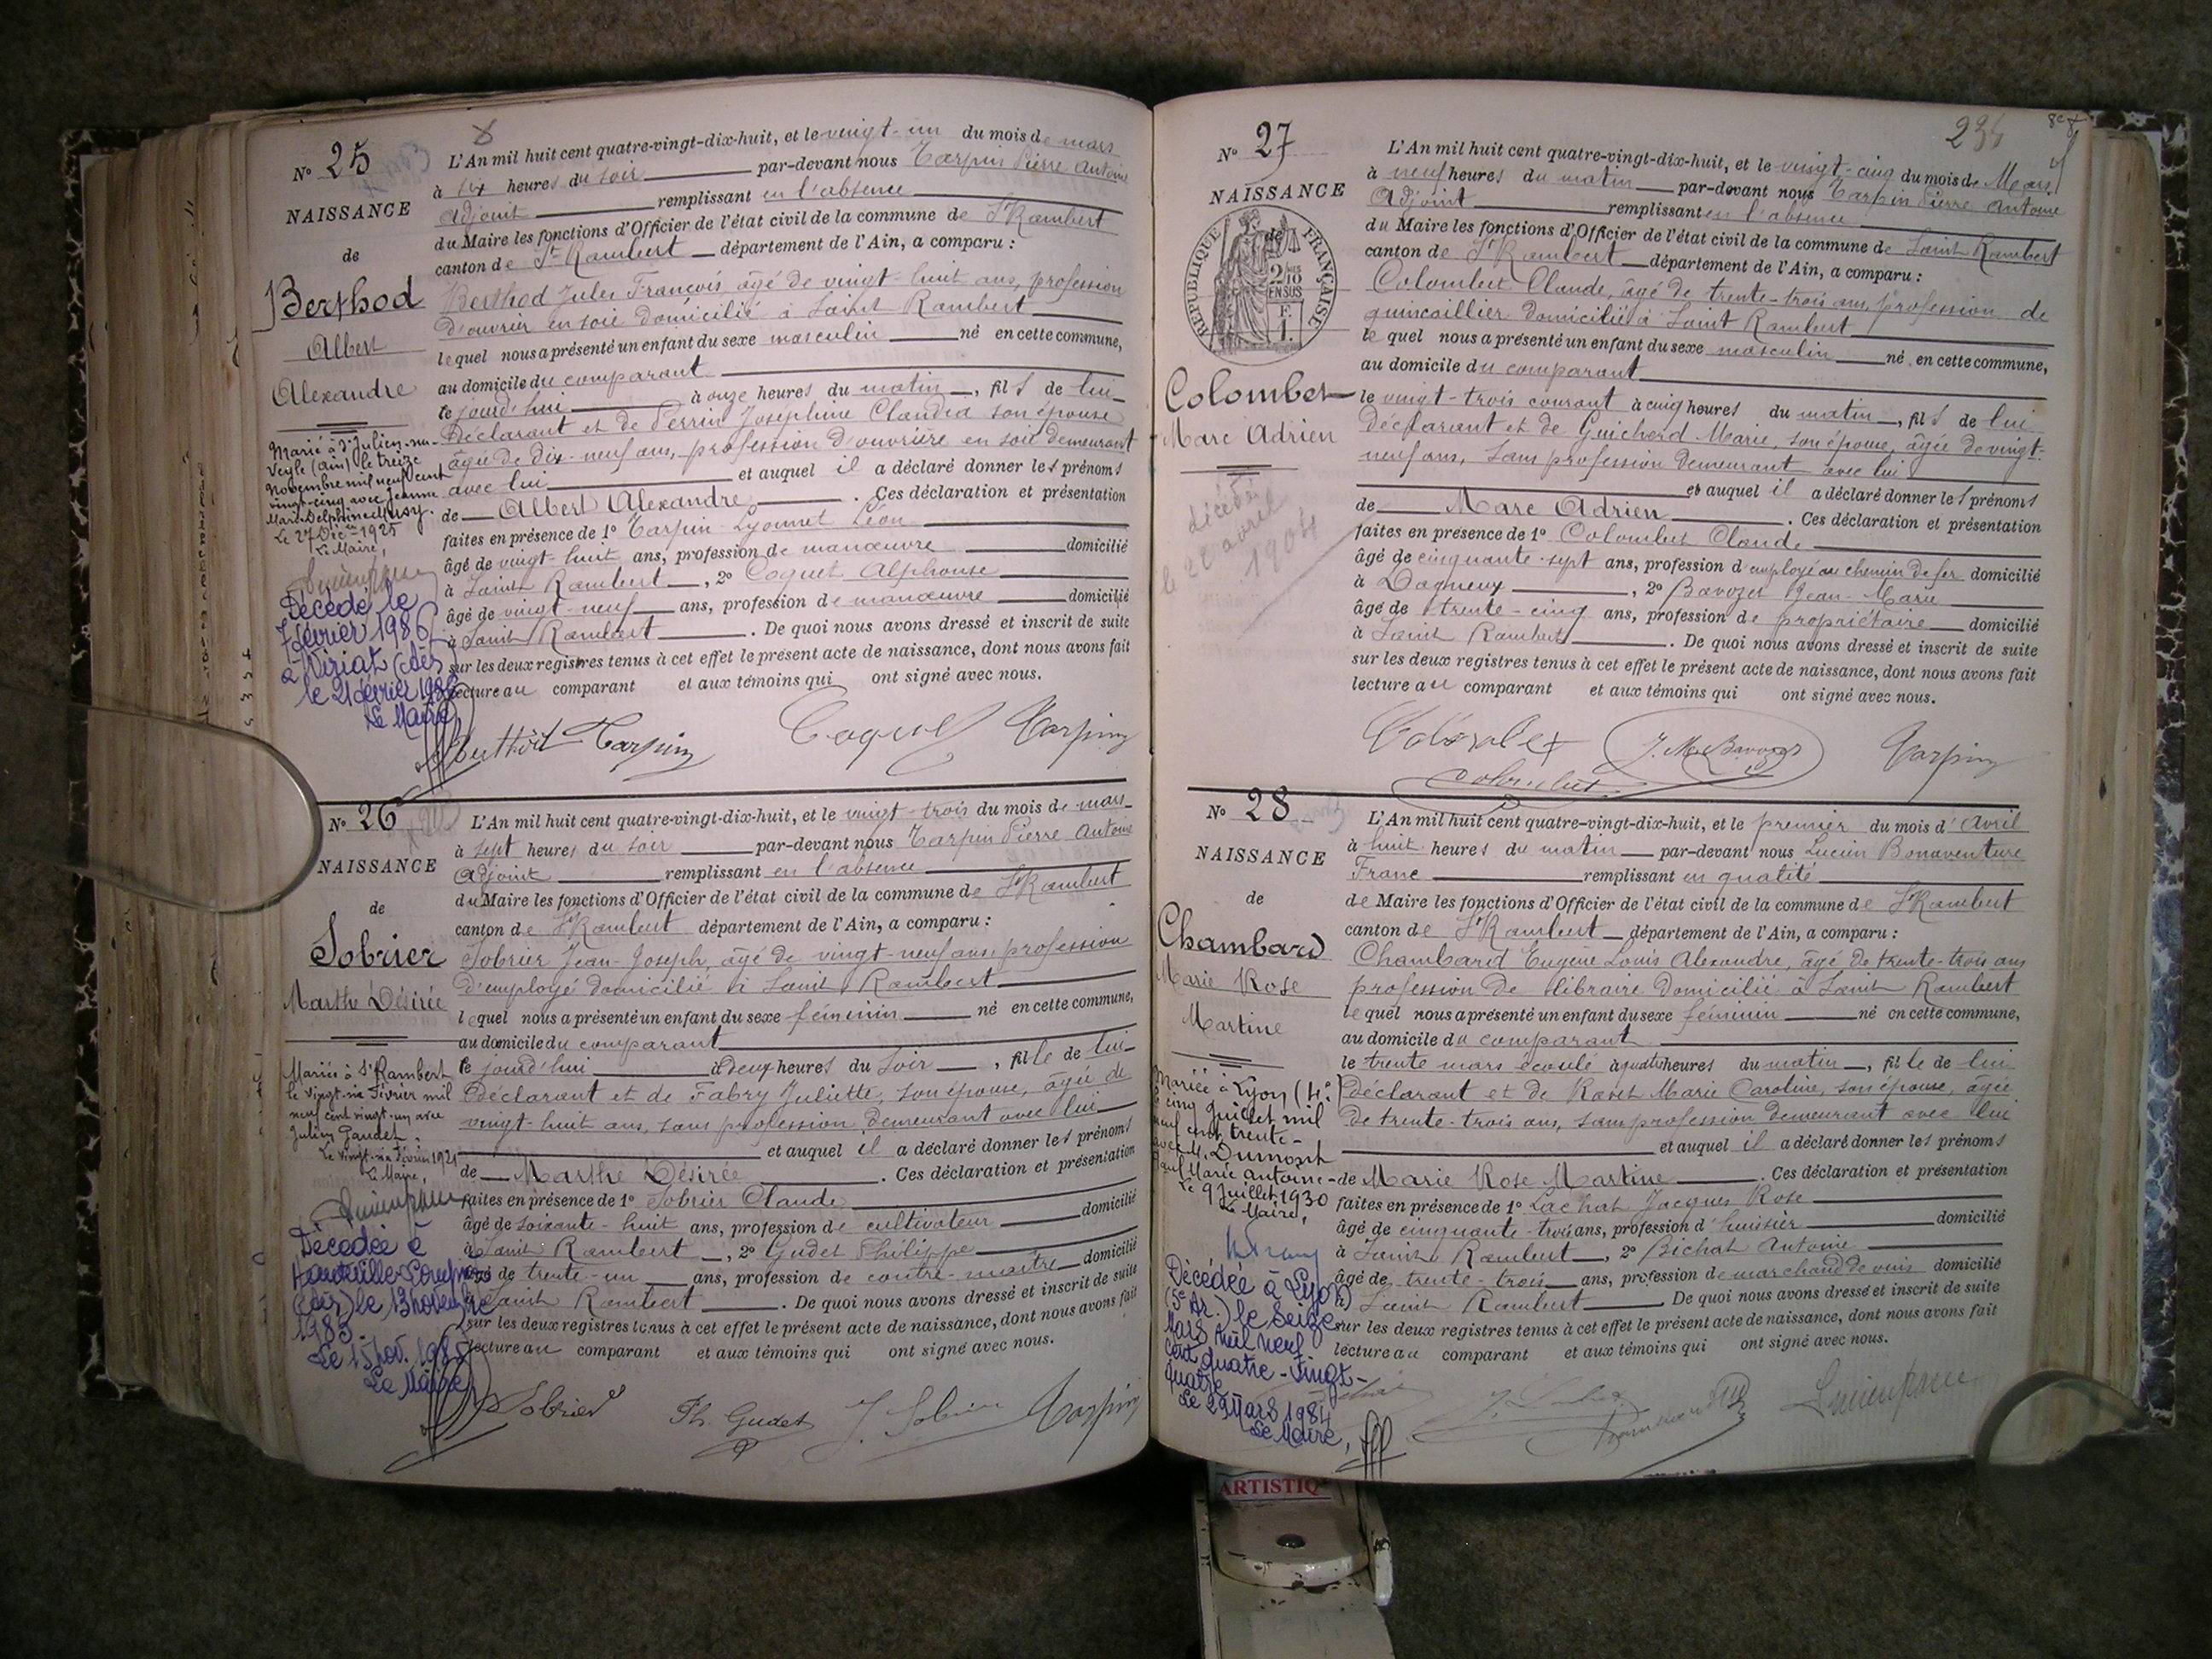 N° 25
NAISSANCE
de
Berthod
Albert
Alexandre
Marié à St Julien-sur-
Veyle (Ain) le treize
Novembre mil neuf cent
vingt-cinq avec Jeanne
Marie Delphine
Le 27 Déc 1925
Le Maire,
Décédé le
7 février 1986
à Viriat (
le 21 février 1986
Le Maire,
L'An mil huit cent quatre-vingt-dix-huit, et le vingt-un du mois de mars
à six heures du soir par-devant nous Tarpin Pierre Antoine
Adjoint remplissant en l'absence
du Maire les fonctions d'Officier de l'état civil de la commune de St Rambert
canton de St Rambert département de l'Ain, a comparu :
Berthod Jules François, âgé de vingt-huit ans, profession
d'ouvrier en soie domicilié à Saint Rambert
lequel nous a présenté un enfant du sexe masculin né en cette commune,
au domicile du comparant
le jourd'hui à onze heures du matin, fils de lui
Déclarant et de Perrin Joséphine Claudia son épouse
âgée de dix-neuf ans, profession d'ouvrière en soie demeurant
avec lui et auquel il a déclaré donner les prénoms
de Albert Alexandre. Ces déclaration et présentation
faites en présence de 1° Tarpin Lyonnet Léon
âgé de vingt-huit ans, profession de manœuvre domicilié
à Saint Rambert, 2° Coquet Alphonse
âgé de vingt-neuf ans, profession de manœuvre domicilié
à Saint Rambert. De quoi nous avons dressé et inscrit de suite
sur les deux registres tenus à cet effet le présent acte de naissance, dont nous avons fait
lecture au comparant et aux témoins qui ont signé avec nous.
Berthod Tarpin Coquet Tarpin
N° 26
NAISSANCE
de
Sobrier
Marthe Désirée
Mariée à St Rambert
le vingt-six Février mil
neuf cent vingt-un avec
Julien Gaudet.
Le vingt-six Février 1921
Le Maire,
Décédée à
Hauteville-Lompnes
le 13 novembre
1985.
Le 15 Nov. 1985
Le Maire,
L'An mil huit cent quatre-vingt-dix-huit, et le vingt-trois du mois de mars
à sept heures du soir par-devant nous Tarpin Pierre Antoine
Adjoint remplissant en l'absence
du Maire les fonctions d'Officier de l'état civil de la commune de St Rambert
canton de St Rambert département de l'Ain, a comparu :
Sobrier Jean-Joseph, âgé de vingt-neuf ans, profession
d'employé domicilié à Saint Rambert
lequel nous a présenté un enfant du sexe féminin né en cette commune,
au domicile du comparant
le jourd'hui à deux heures du soir, fille de lui
Déclarant et de Fabry Juliette, son épouse, âgée de
vingt-huit ans, sans profession, demeurant avec lui
et auquel il a déclaré donner les prénoms
de Marthe Désirée. Ces déclaration et présentation
faites en présence de 1° Sobrier Claude
âgé de soixante-huit ans, profession de cultivateur domicilié
à Saint Rambert, 2° Gudet Philippe
âgé de trente-un ans, profession de contre-maître domicilié
à Saint Rambert. De quoi nous avons dressé et inscrit de suite
sur les deux registres tenus à cet effet le présent acte de naissance, dont nous avons fait
lecture au comparant et aux témoins qui ont signé avec nous.
Sobrier Ph. Gudet J. Sobrier Tarpin
234
N° 27
NAISSANCE
de
RÉPUBLIQUE FRANÇAISE
2/10 EN SUS
F. 1.
Colombet
Marc Adrien
décédé
le 20 avril
1904
L'An mil huit cent quatre-vingt-dix-huit, et le vingt-cinq du mois de Mars
à neuf heures du matin par-devant nous Tarpin Pierre Antoine
Adjoint remplissant en l'absence
du Maire les fonctions d'Officier de l'état civil de la commune de Saint Rambert
canton de St Rambert département de l'Ain, a comparu :
Colombet Claude, âgé de trente-trois ans, profession de
quincaillier domicilié à Saint Rambert
lequel nous a présenté un enfant du sexe masculin né en cette commune,
au domicile du comparant
le vingt-trois courant à cinq heures du matin, fils de lui
Déclarant et de Guichard Marie, son épouse, âgée de vingt-
neuf ans, sans profession demeurant avec lui
et auquel il a déclaré donner les prénoms
de Marc Adrien. Ces déclaration et présentation
faites en présence de 1° Colombet Claude
âgé de cinquante-sept ans, profession d'employé au chemin de fer domicilié
à Dagneux, 2° Bavozet Jean-Marie
âgé de trente-cinq ans, profession de propriétaire domicilié
à Saint Rambert. De quoi nous avons dressé et inscrit de suite
sur les deux registres tenus à cet effet le présent acte de naissance, dont nous avons fait
lecture au comparant et aux témoins qui ont signé avec nous.
Colombet J. M. Bavozet Tarpin
Colombet
N° 28
NAISSANCE
de
Chambard
Marie Rose
Martine
Mariée à Lyon (4e)
le cinq juillet mil
neuf cent trente
avec M. Dumont
Paul Marie Antoine
Le 9 Juillet 1930
Le Maire,
Décédée à Lyon
(5e Ar.) le seize
Mars mil neuf
cent quatre-vingt-
quatre
Le 29 Mars 1984
Le Maire,
L'An mil huit cent quatre-vingt-dix-huit, et le premier du mois d'Avril
à huit heures du matin par-devant nous Lucien Bonaventure
Franc remplissant en qualité
de Maire les fonctions d'Officier de l'état civil de la commune de St Rambert
canton de St Rambert département de l'Ain, a comparu :
Chambard Eugène Louis Alexandre, âgé de trente-trois ans
profession de libraire domicilié à Saint Rambert
lequel nous a présenté un enfant du sexe féminin né en cette commune,
au domicile du comparant
le trente mars écoulé à quatre heures du matin, fille de lui
déclarant et de Ravet Marie Caroline, son épouse, âgée
de trente-trois ans, sans profession demeurant avec lui
et auquel il a déclaré donner les prénoms
de Marie Rose Martine. Ces déclaration et présentation
faites en présence de 1° Lachat Jacques Rose
âgé de cinquante-trois ans, profession d'huissier domicilié
à Saint Rambert, 2° Bichat Antoine
âgé de trente-trois ans, profession de marchand de vins domicilié
à Saint Rambert. De quoi nous avons dressé et inscrit de suite
sur les deux registres tenus à cet effet le présent acte de naissance, dont nous avons fait
lecture au comparant et aux témoins qui ont signé avec nous.
ARTISTIQ